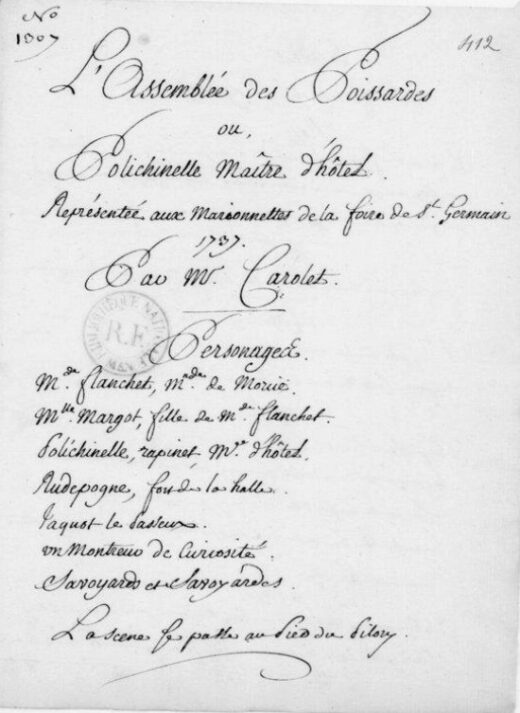 No
1307
412
L'Assemblée des Poissardes
ou,
Polichinelle Maître d'hôtel.
Représentée aux Marionnettes de la foire de St. Germain
1737.
Par Mr. Carolet.
BIBLIOTHEQUE NATIONALE
R.F.
MSS
Personages.
Mde. flanchet, Mde. de Morüe.
Mlle. Margot, fille de Mde. flanchet.
Polichinelle, rapinet Me. d'hôtel.
Rudepogne, fort de la halle.
Jaquot le Passeux.
un Montreur de Curiosité.
Savoyards et Savoyardes.
La scene se passe au Pied du Pilory.